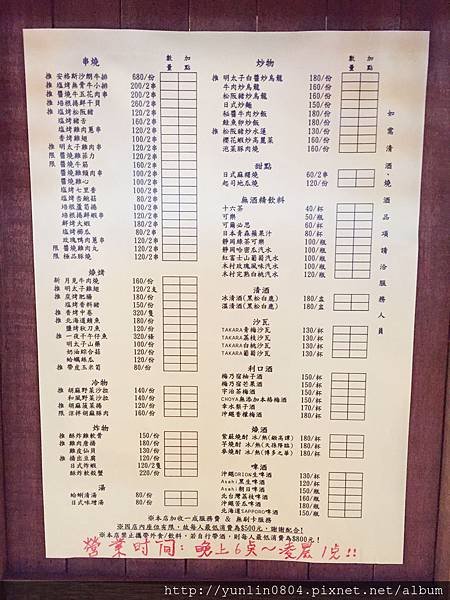 串燒 數量 加點
推 安格斯沙朗牛排 680/份
推 塩烤無骨牛小排 200/2串
推 醬燒牛五花肉串 200/2串
推 培根捲鮮干貝 260/2串
推 塩烤松阪豬 120/2串
塩烤豬舌 160/2串
塩烤雞肉蔥串 120/2串
香烤雞翅 100/2串
推 明太子雞肉串 120/2串
限 醬燒雞菲力 120/2串
限 醬燒牛筋 160/2串
醬燒雞頸肉串 120/2串
醬燒雞心 120/2串
塩烤七里香 120/2串
塩烤杏鮑菇 80/2串
培根蘆筍捲 100/2串
培根捲鮮蝦 120/2串
鮮烤大蝦 180/2串
塩烤櫛瓜 80/2串
玫瑰鴨肉蔥串 120/2串
限 醬燒雞肉丸 120/2串
限 極品豚燒 120/2串
燒烤
新 月見牛肉燒 160/份
推 明太子雞翅 120/2支
推 炭烤肥腸 180/份
塩烤香料豬 150/份
推 香烤中卷 320/隻
推 北海道鯖魚 180/份
鹽烤秋刀魚 120/份
推 一夜干午仔魚 320/條
明太子山藥 100/份
奶油綜合菇 120/份
蛤蠣絲瓜 120/份
推 帶皮玉米筍 80/份
冷物
推 胡麻野菜沙拉 140/份
和風野菜沙拉 140/份
推 胡麻菠菜捲 120/份
限 涼拌胡麻豚肉 160/份
炸物
推 酥炸雞軟骨 150/份
推 雞肉唐揚 180/份
雞皮仙貝 130/份
推 揚出豆腐 120/份
日式炸蝦 120/2隻
酥炸軟殼蟹 220/份
湯
蛤蜊清湯 80/份
日式味增湯 80/份
炒物 數量 加點
推 明太子白醬炒烏龍 180/份
牛肉炒烏龍 160/份
松阪豬炒烏龍 160/份
日式炒麵 150/份
秘醬牛肉炒飯 150/份
鮭魚卵炒飯 180/份
推 松阪豬炒水蓮 130/份
櫻花蝦炒高麗菜 160/份
泡菜豚肉燒 180/份
甜點
日式麻糬燒 60/份
起司地瓜燒 120/份
無酒精飲料
十六茶 40/杯
可樂 50/瓶
可爾必思 60/杯
日本青森蘋果汁 80/杯
靜岡綠茶可樂 100/瓶
靜岡哈密瓜汽水 100/瓶
紅富士山葡萄汽水 100/瓶
木村玫瑰風味汽水 100/瓶
木村完熟白桃汽水 100/瓶
清酒
冰清酒(黑松白鹿) 180/盅
溫清酒(黑松白鹿) 180/盅
沙瓦
TAKARA青梅沙瓦 130/杯
TAKARA荔枝沙瓦 130/杯
TAKARA白桃沙瓦 130/杯
TAKARA葡萄沙瓦 130/杯
利口酒
梅乃宿柚子酒 150/杯
梅乃宿芒果酒 150/杯
宇治茶梅酒 150/杯
CHOYA無添加本格梅酒 150/杯
幸水梨子酒 170/杯
沖繩香檬梅酒 180/杯
燒酒
紫蘇燒酎 冰/熱(鍛高譚) 180/杯
芋燒酎 冰/熱(天孫降臨) 180/杯
麥燒酎 冰/熱(博多之華) 180/杯
啤酒
沖繩ORION生啤酒 130/杯
Asahi黑生啤酒 120/瓶
Asahi朝日啤酒 120/瓶
北台灣荔枝啤酒 100/瓶
沖繩苦瓜啤酒 180/瓶
北海道SAPPORO啤酒 180/瓶
如需清酒、燒酒品項請洽服務人員
※本店加收一成服務費 & 無刷卡服務
※因店內座位有限，故每人最低消費為$500元，謝謝配合！
※本店禁止攜帶外食/飲料，若自行帶酒，則每人最低消費為$800元！
營業時間：晚上6點～凌晨1點!!
http://yunlin0804.pixnet.net/album